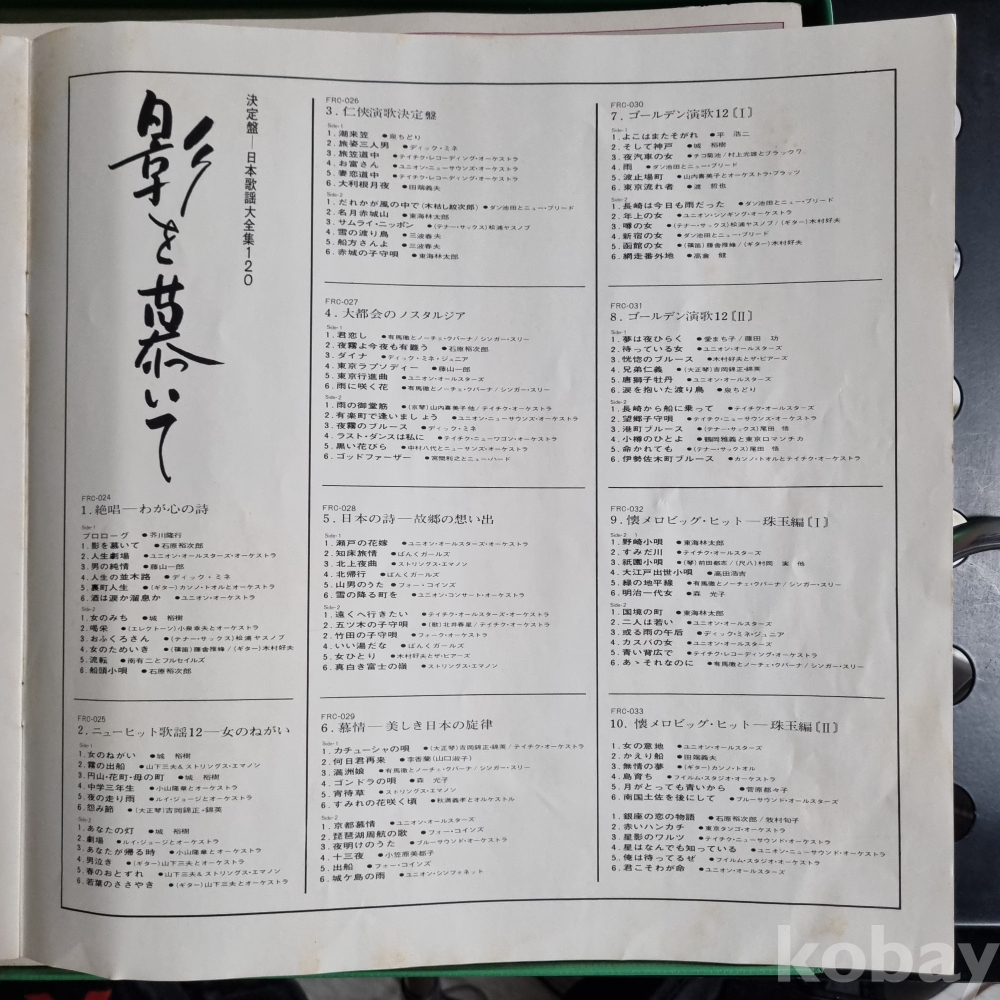 影を慕いて
決定盤―日本歌謡大全集120
FRC-024
1.絶唱―わが心の詩
Side-1
プロローグ ●芥川隆行
1.影を慕いて ●石原裕次郎
2.人生劇場 ●ユニオン・オールスターズ・オーケストラ
3.男の純情 ●藤山一郎
4.人生の並木路 ●ディック・ミネ
5.裏町人生 ●(ギター)カンノ・トオルとオーケストラ
6.酒は涙か溜息か ●ユニオン・オーケストラ
Side-2
1.女のみち ●城 裕樹
2.喝采 ●(エレクトーン)小泉幸夫とオーケストラ
3.おふくろさん ●(テナー・サックス)松浦ヤスノブ
4.女のためいき ●(篠笛)藤舎推峰/(ギター)木村好夫
5.流転 ●南有二とフルセイルズ
6.船頭小唄 ●石原裕次郎
FRC-025
2.ニューヒット歌謡12―女のねがい
Side-1
1.女のねがい ●城 裕樹
2.霧の出船 ●山下三夫&ストリングス・エマノン
3.円山・花町・母の町 ●城 裕樹
4.中学三年生 ●小山隆章とオーケストラ
5.夜の走り雨 ●ルイ・ジョージとオーケストラ
6.怨み節 ●(大正琴)吉岡錦正・錦英
Side-2
1.あなたの灯 ●城 裕樹
2.劇場 ●ルイ・ジョージとオーケストラ
3.あなたが帰る時 ●小山隆章とオーケストラ
4.男泣き ●(ギター)山下三夫とオーケストラ
5.春のおとずれ ●山下三夫&ストリングス・エマノン
6.若葉のささやき ●(ギター)山下三夫とオーケストラ
FRC-026
3.仁侠演歌決定盤
Side-1
1.潮来笠 ●泉ちどり
2.旅姿三人男 ●ディック・ミネ
3.旅笠道中 ●テイチク・レコーディング・オーケストラ
4.お富さん ●ユニオン・ニューサウンズ・オーケストラ
5.妻恋道中 ●テイチク・レコーディング・オーケストラ
6.大利根月夜 ●田端義夫
Side-2
1.だれかが風の中で(木枯し紋次郎) ●ダン池田とニュー・ブリード
2.名月赤城山 ●東海林太郎
3.サムライ・ニッポン ●(テナー・サックス)松浦ヤスノブ
4.雪の渡り鳥 ●三波春夫
5.船方さんよ ●三波春夫
6.赤城の子守唄 ●東海林太郎
FRC-027
4.大都会のノスタルジア
Side-1
1.君恋し ●有馬徹とノーチェ・クバーナ/シンガー・スリー
2.夜霧よ今夜も有難う ●石原裕次郎
3.ダイナ ●ディック・ミネ・ジュニア
4.東京ラプソディー ●藤山一郎
5.東京行進曲 ●ユニオン・オールスターズ
6.雨に咲く花 ●有馬徹とノーチェ・クバーナ/シンガー・スリー
Side-2
1.雨の御堂筋 ●(京琴)山内喜美子他/テイチク・オーケストラ
2.有楽町で逢いましょう ●ユニオン・ニューサウンズ・オーケストラ
3.夜霧のブルース ●ディック・ミネ
4.ラスト・ダンスは私に ●テイチク・ニューワゴン・オーケストラ
5.黒い花びら ●中村八代とニューサンズ・オーケストラ
6.ゴッドファーザー ●宮間利之とニュー・ハード
FRC-028
5.日本の詩―故郷の想い出
Side-1
1.瀬戸の花嫁 ●ユニオン・オールスターズ・オーケストラ
2.知床旅情 ●ばんくガールズ
3.北上夜曲 ●ストリングス・エマノン
4.北帰行 ●ばんくガールズ
5.山男のうた ●フォー・コインズ
6.雪の降る町を ●ユニオン・コンサート・オーケストラ
Side-2
1.遠くへ行きたい ●テイチク・オールスターズ・オーケストラ
2.五ツ木の子守唄 ●(歌)北井春星/テイチク・オーケストラ
2.竹田の子守唄 ●フォーク・オーケストラ
4.いい湯だな ●ばんくガールズ
5.女ひとり ●木村好夫とザ・ビアーズ
6.真白き富士の嶺 ●ストリングス・エマノン
FRC-029
6.慕情―美しき日本の旋律
Side-1
1.カチューシャの唄 ●(大正琴)吉岡錦正・錦英/テイチク・オーケストラ
2.何日君再来 ●李香蘭(山口淑子)
3.満洲娘 ●有馬徹とノーチェ・クバーナ/シンガー・スリー
4.ゴンドラの唄 ●森 光子
5.宵待草 ●ストリングス・エマノン
6.すみれの花咲く頃 ●秋満義孝とオルケステル
Side-2
1.京都慕情 ●ユニオン・オールスターズ
2.琵琶湖周航の歌 ●フォー・コインズ
3.夜明けのうた ●ブルーサウンド・オーケストラ
4.十三夜 ●小笠原美都子
5.出船 ●フォー・コインズ
6.城ケ島の雨 ●ユニオン・シンフォネット
FRC-030
7.ゴールデン演歌12〔I〕
Side-1
1.よこはまたそがれ ●平 浩二
2.そして神戸 ●城 裕樹
3.夜汽車の女 ●チコ菊池/村上光雄とブラックワ
4.雨 ●ダン池田とニュー・ブリード
5.波止場町 ●山内喜美子とオーケストラ・ブラッツ
6.東京流れ者 ●渡 哲也
Side-2
1.長崎は今日も雨だった ●ダン池田とニュー・ブリード
2.年上の女 ●ユニオン・シンギング・オーケストラ
3.噂の女 ●(テナー・サックス)松浦ヤスノブ/(ギター)木村好夫
4.新宿の女 ●ダン池田とニュー・ブリード
5.函館の女 ●(篠笛)藤舎推峰/(ギター)木村好夫
6.網走番外地 ●高倉 健
FRC-031
8.ゴールデン演歌12〔II〕
Side-1
1.夢は夜ひらく ●愛まち子/藤田 功
2.待っている女 ●ユニオン・オールスターズ
3.恍惚のブルース ●木村好夫とザ・ビアーズ
4.兄弟仁義 ●(大正琴)吉岡錦正・錦英
5.唐獅子牡丹 ●ユニオン・オールスターズ
6.涙を抱いた渡り鳥 ●泉ちどり
Side-2
1.長崎から船に乗って ●テイチク・オールスターズ
2.望郷子守唄 ●テイチク・ニューサウンズ・オーケストラ
3.港町ブルース ●(テナー・サックス)尾田 悟
4.小樽のひとよ ●鶴岡雅義と東京ロマンチカ
5.命かれても ●(テナー・サックス)尾田 悟
6.伊勢佐木町ブルース ●カンノ・トオルとテイチク・オーケストラ
FRC-032
9.懐メロビッグ・ヒット―珠玉編〔I〕
Side-1
1.野崎小唄 ●東海林太郎
2.すみだ川 ●テイチク・オールスターズ
3.祇園小唄 ●(琴)前田都志/(尺八)村岡 実 他
4.大江戸出世小唄 ●高田浩吉
5.緑の地平線 ●有馬徹とノーチェ・クバーナ/シンガー・スリー
6.明治一代女 ●森 光子
Side-2
1.国境の町 ●東海林太郎
2.二人は若い ●ユニオン・オールスターズ
3.或る雨の午后 ●ディック・ミネ・ジュニア
4.カスバの女 ●ユニオン・オールスターズ
5.青い背広で ●テイチク・レコーディング・オーケストラ
6.あゝそれなのに ●有馬徹とノーチェ・クバーナ/シンガー・スリー
FRC-033
10.懐メロビッグ・ヒット―珠玉編〔II〕
1.女の意地 ●ユニオン・オールスターズ
2.かえり船 ●田端義夫
3.無情の夢 ●(ギター)カンノ・トオル
4.島育ち ●フイルム・スタジオ・オーケストラ
5.月がとっても青いから ●菅原都々子
6.南国土佐を後にして ●ブルーサウンド・オールスターズ
1.銀座の恋の物語 ●石原裕次郎/牧村旬子
2.赤いハンカチ ●東京タンゴ・オーケストラ
3.星影のワルツ ●テイチク・ニューサウンド・オーケストラ
4.星はなんでも知っている ●ユニオン・ニューサウンド・オーケストラ
5.俺は待ってるぜ ●フイルム・スタジオ・オーケストラ
6.君こそわが命 ●ユニオン・オールスターズ
kobay